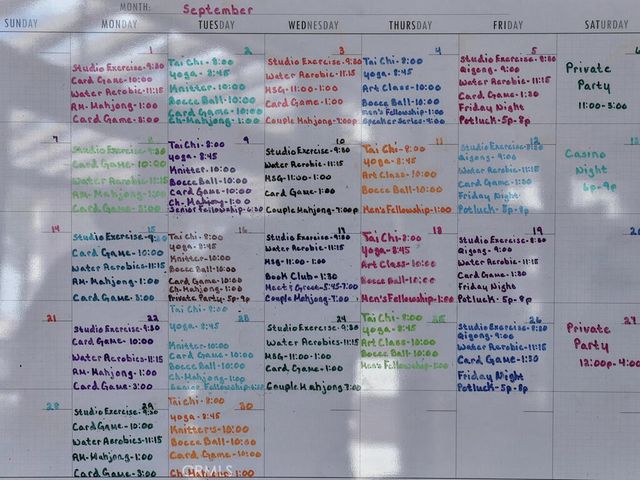 MONTH: September
SUNDAY MONDAY TUESDAY WEDNESDAY THURSDAY FRIDAY SATURDAY
1
Studio Exercise-9:30
Card Game-10:00
Water Aerobic-11:15
AM-Mahjong-1:00
Card Game-3:00
2
Tai Chi-8:00
Yoga-8:45
Knitter-10:00
Bocce Ball-10:00
Card Game 10:00
Ch-Mahjong-1:00
3
Studio Exercise-9:30
Water Aerobic-11:15
MSG-11:00-1:00
Card Game-1:00
Couple Mahjong-7:00p
4
Tai Chi-8:00
Yoga-8:45
Art Class-10:00
Bocce Ball-10:00
Men's Fellowship-1:00
Speaker Series-4:00
5
Studio Exercise-9:30
Qigong-9:00
Water Aerobic-11:15
Card Game-1:30
Friday Night
Potluck-5p-8p
6
Private
Party
11:00-3:00
7
8
Studio Exercise-9:30
Card Game-10:00
Water Aerobic-11:15
AM-Mahjong-1:00
Card Game-3:00
9
Tai Chi-8:00
Yoga-8:45
Knitter-10:00
Bocce Ball-10:00
Card Game-10:00
Ch-Mahjong-1:00
Senior Fellowship-6:30
10
Studio Exercise-9:30
Water Aerobic-11:15
MSG-11:00-1:00
Card Game-1:00
Couple Mahjong-7:00p
11
Tai Chi-8:00
Yoga-8:45
Art Class-10:00
Bocce Ball-10:00
Men's Fellowship-1:00
12
Studio Exercise-9:30
Qigong-9:00
Water Aerobic-11:15
Card Game-1:30
Friday Night
Potluck-5p-8p
13
Casino
Night
6p-9p
14
15
Studio Exercise-9:30
Card Game-10:00
Water Aerobic-11:15
AM-Mahjong-1:00
Card Game-3:00
16
Tai Chi-8:00
Yoga-8:45
Knitter-10:00
Bocce Ball-10:00
Card Game-10:00
Ch-Mahjong-1:00
Private Party-5p-9p
17
Studio Exercise-9:30
Water Aerobic-11:15
MSG-11:00-1:00
Book Club-1:30
Meet & Greet-5:45-7:00
Couple Mahjong-7:00
18
Tai Chi-8:00
Yoga-8:45
Art Class-10:00
Bocce Ball-10:00
Men's Fellowship-1:00
19
Studio Exercise-9:30
Qigong-9:00
Water Aerobic-11:15
Card Game-1:30
Friday Night
Potluck-5p-8p
20
21
22
Studio Exercise-9:30
Card Game-10:00
Water Aerobic-11:15
AM-Mahjong-1:00
Card Game-3:00
23
Tai Chi-8:00
Yoga-8:45
Knitter-10:00
Card Game-10:00
Bocce Ball-10:00
Ch-Mahjong-1:00
Senior Fellowship-6:30
24
Studio Exercise-9:30
Water Aerobic-11:15
MSG-11:00-1:00
Card Game-1:00
Couple Mahjong 7:00p
25
Tai Chi-8:00
Yoga-8:45
Art Class-10:00
Bocce Ball-10:00
Men's Fellowship-1:00
26
Studio Exercise-9:30
Qigong-9:00
Water Aerobic-11:15
Card Game-1:30
Friday Night
Potluck-5p-8p
27
Private
Party
12:00p-4:00
28
29
Studio Exercise-9:30
Card Game-10:00
Water Aerobics-11:15
AM-Mahjong-1:00
Card Game-3:00
30
Tai Chi-8:00
Yoga-8:45
Knitters-10:00
Bocce Ball-10:00
Card Game-10:00
Ch-Mahjong-1:00
CRMLS